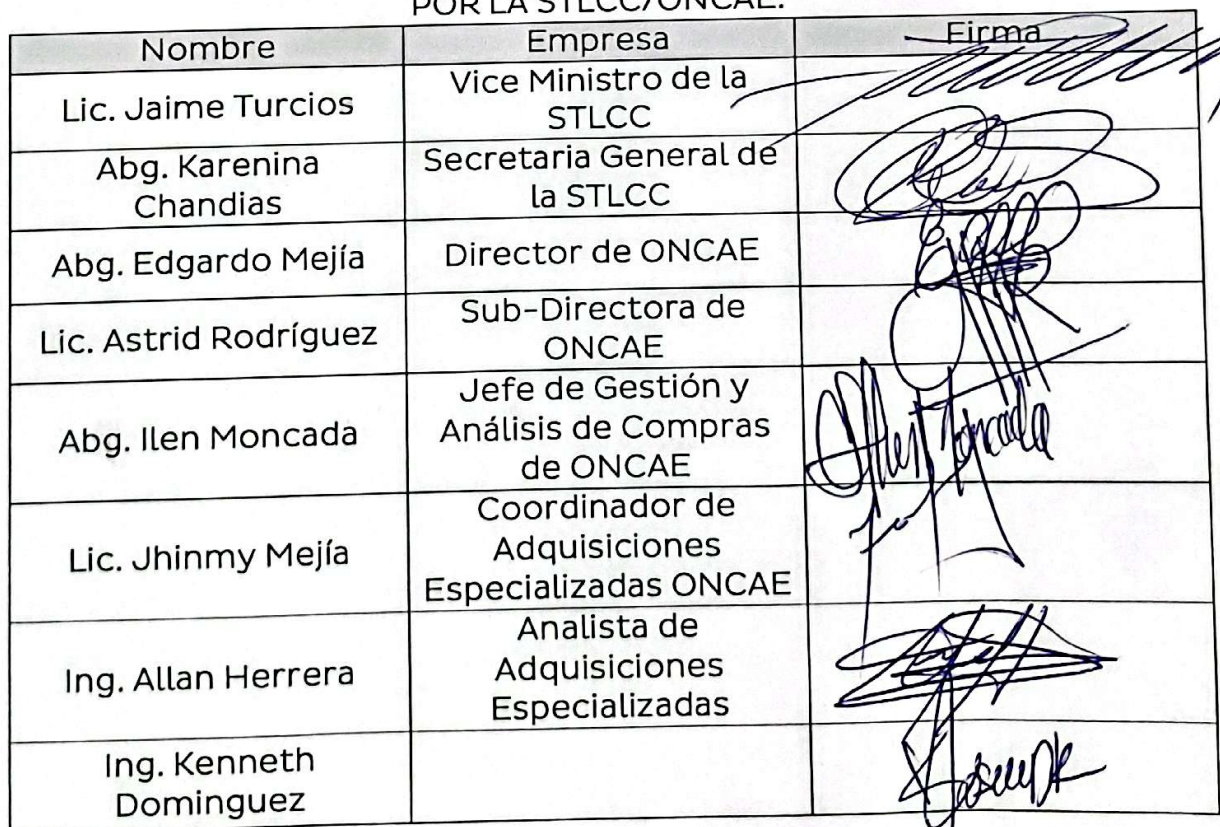 POR LA STLCC/ONCAE:
Nombre Empresa Firma
Lic. Jaime Turcios Vice Ministro de la
STLCC
Abg. Karenina
Chandias Secretaria General de
la STLCC
Abg. Edgardo Mejía Director de ONCAE
Lic. Astrid Rodríguez Sub-Directora de
ONCAE
Abg. Ilen Moncada Jefe de Gestión y
Análisis de Compras
de ONCAE
Ilen Moncada
Lic. Jhinmy Mejía Coordinador de
Adquisiciones
Especializadas ONCAE
Ing. Allan Herrera Analista de
Adquisiciones
Especializadas
Ing. Kenneth
Dominguez